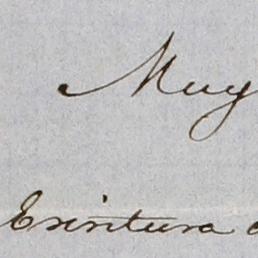 Muy
Escritura